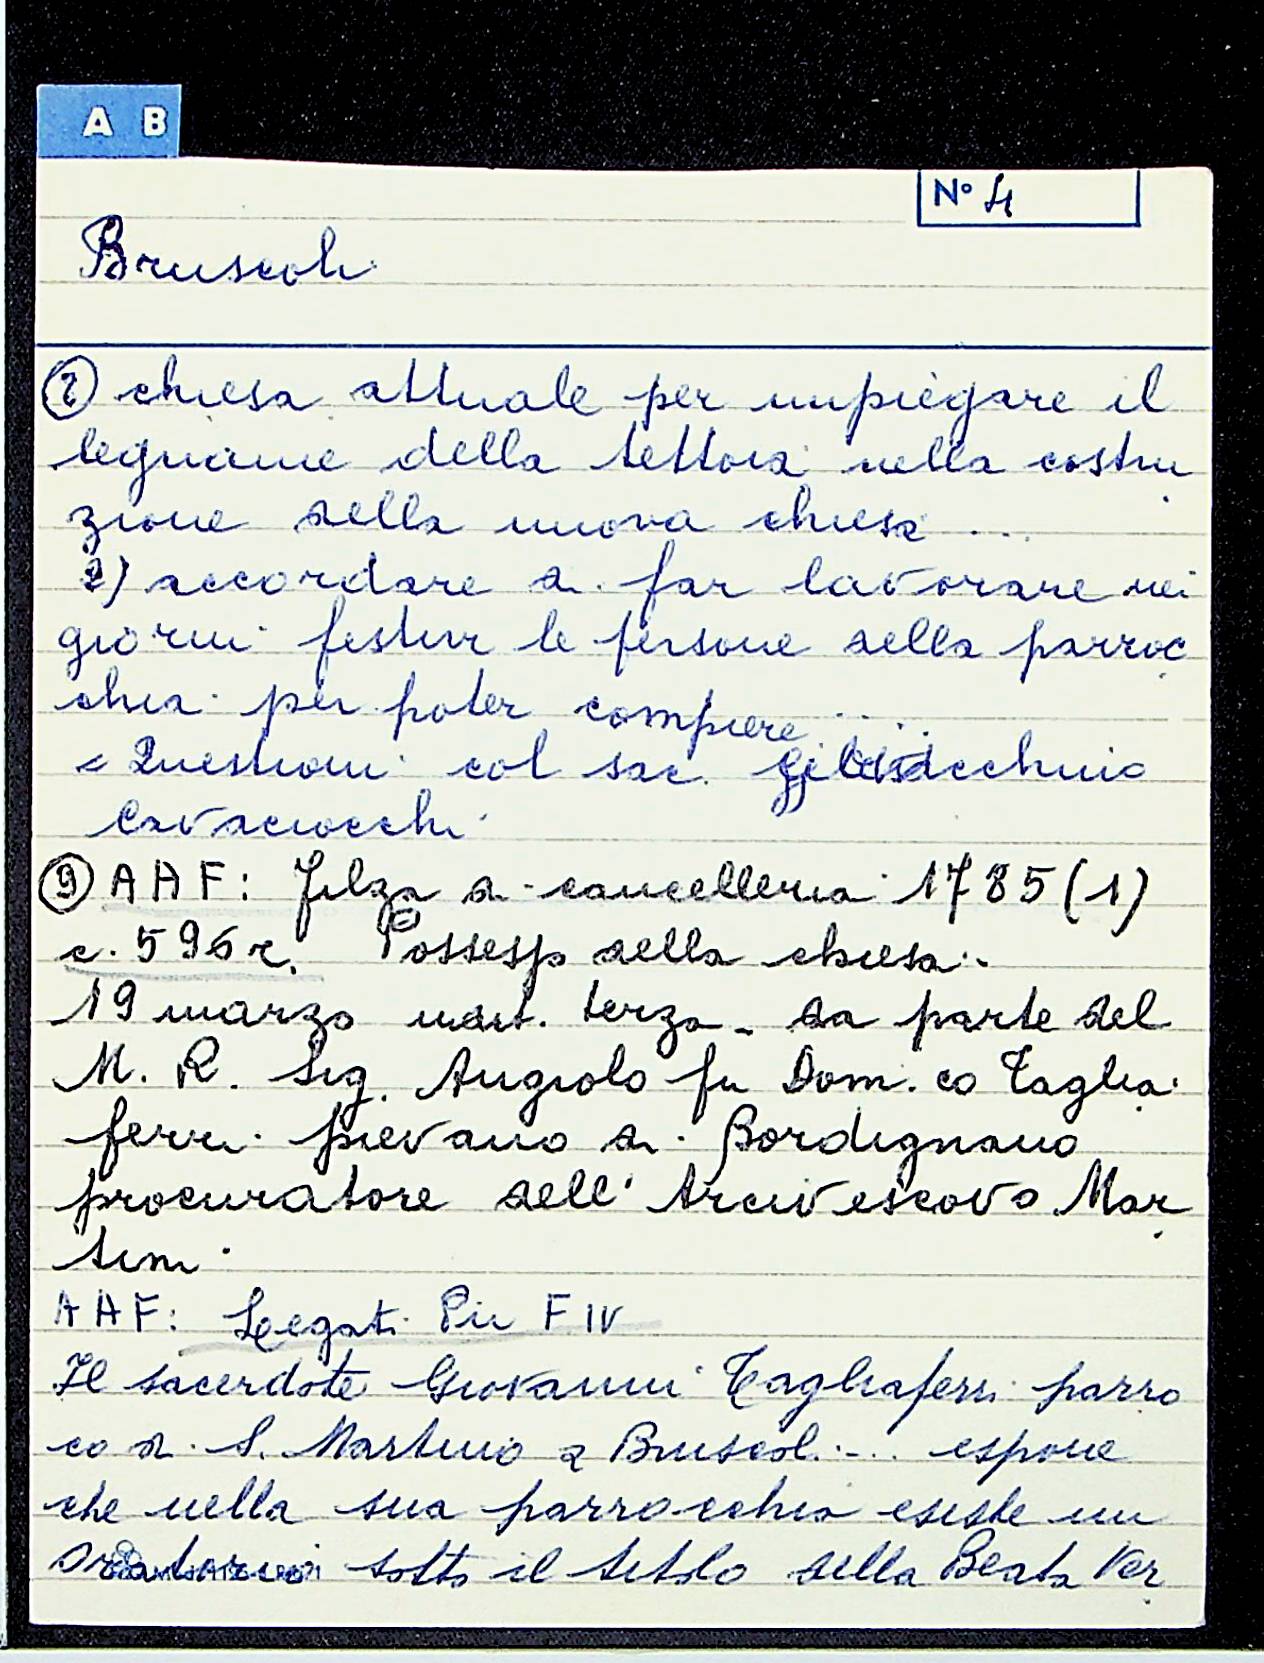 A B
N° 4
Bruscoli
chiesa attuale per impiegare il
legname della tettoia nella costru
zione della nuova chiesa ...
2) accordare di far lavorare nei
giorni festivi le persone della parroc
chia per poter compiere ...
Questioni col sac.
Cavaciocchi
9 AAF: Filza di cancelleria 1785 (1)
c. 596r. Possesso della chiesa.-
19 marzo terza - da parte del
M. R. Sig. Angiolo fu Dom.co Taglia
ferri pievano di Bordignano
procuratore dell'Arcivescovo Mar
tini
AAF: Legati Pii F IV
Il sacerdote Giovanni Tagliaferri parro
co di S. Martino a Bruscoli ... espone
che nella sua parrocchia esiste un
oratorio sotto il titolo della Beata Ver